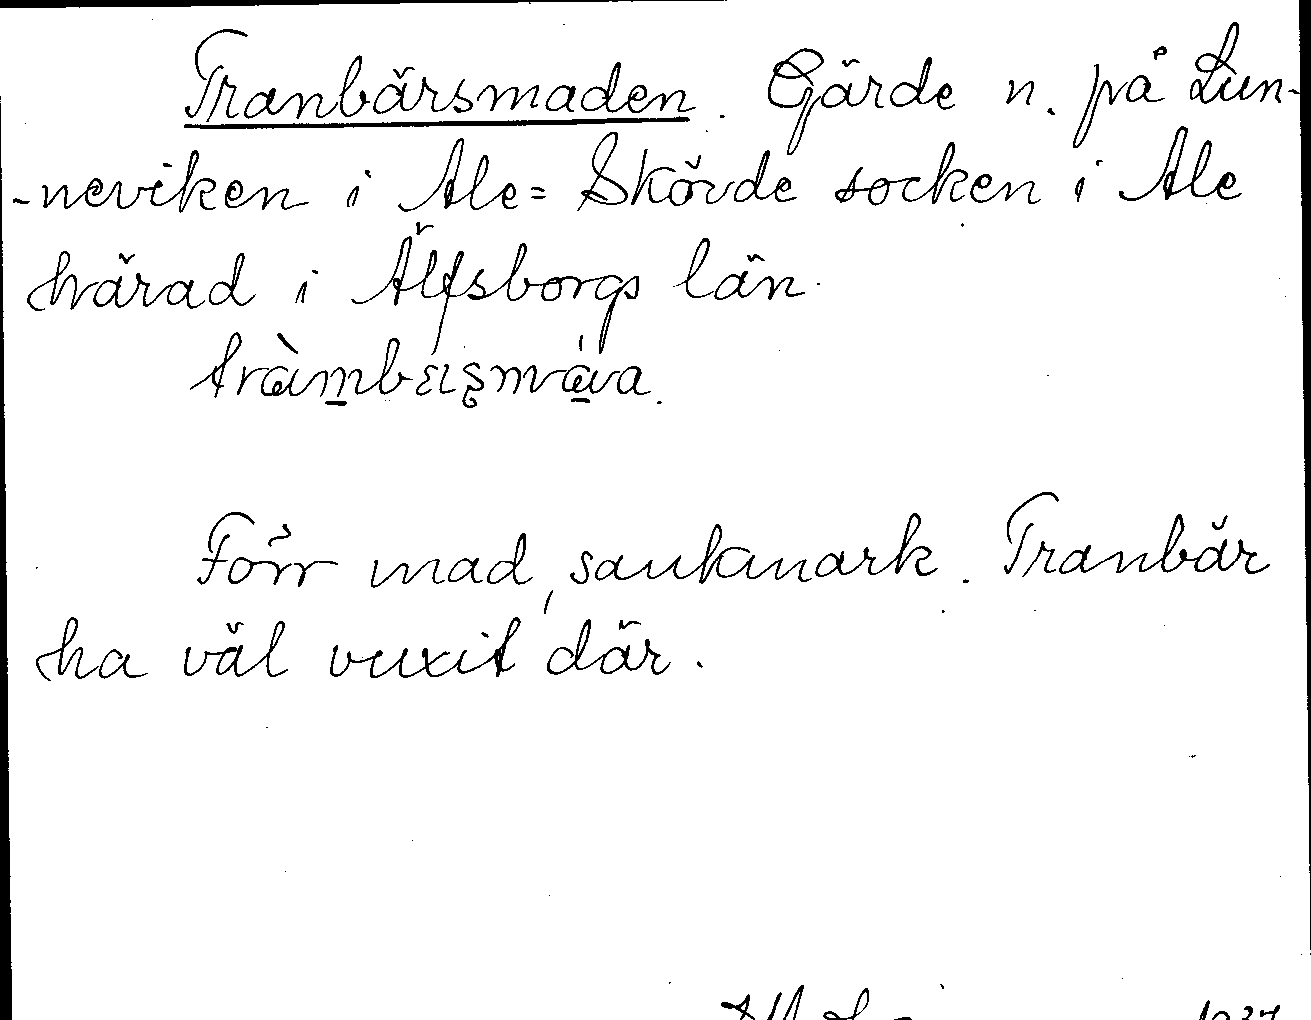 Tranbärsmaden. Gärde n. på Lun-
-neviken i Ale=Skövde socken i Ale
härad i Älfsborgs län.

Förr mad, sankmark. Tranbär
ha väl vuxit där.